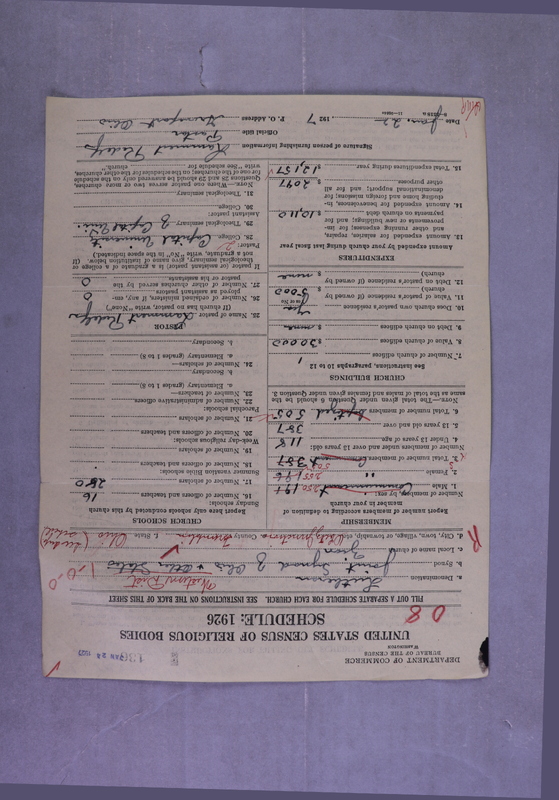 DEPARTMENT OF COMMERCE
BUREAU OF THE CENSUS
WASHINGTON
JAN 28 1927
UNITED STATES CENSUS OF RELIGIOUS BODIES
SCHEDULE: 1926
08
FILL OUT A SEPARATE SCHEDULE FOR EACH CHURCH. SEE INSTRUCTIONS ON THE BACK OF THIS SHEET
a. Denomination Lutheran
Western Dist.
b. Synod Joint Synod of Ohio & Other States
1-0-0
c. Local name of church Zion
d. City, town, village, or township, etc.
County Franklin
f. State Ohio
MEMBERSHIP
Report number of members according to definition of member in your church
Number of members by sex:
1. Male 250 191
2. Female " 255 196
3. Total number of members 505 387
4. Under 13 years of age 118
5. 13 years and over 387
6. Total number of members baptized 505
NOTE.—The total given under Question 6 should be the same as the total of males and females given under Question 3.
CHURCH BUILDINGS
See instructions, paragraphs 10 to 12
7. Number of church edifices 1
8. Value of church edifices $ 30000
9. Debt on church edifices $ none
10. Does church own pastor's residence Yes
11. Value of pastor's residence (if owned by church) $ 5000
12. Debt on pastor's residence (if owned by church) $ none
EXPENDITURES
Amount expended by your church during last fiscal year
13. Amount expended for salaries, repairs, and other running expenses; for improvements or new buildings; and for payments on church debt $ 10,110
14. Amount expended for benevolences, including home and foreign missions; for denominational support; and for all other purpose $ 2047
15. Total expenditures during year $ 12,157
CHURCH SCHOOLS
Report here only schools conducted by this church
Sunday schools:
16. Number of officers and teachers 16
17. Number of scholars 250
Summer vacation Bible schools:
18. Number of officers and teachers
19. Number of scholars
Week-day religious schools:
20. Number of officers and teachers
21. Number of scholars
Parochial schools:
22. Number of administrative officers
23. Number of teachers—
a. Elementary (grades 1 to 8)
b. Secondary
24. Number of scholars—
a. Elementary (grades 1 to 8)
b. Secondary
PASTOR
25. Name of pastor
(If church has no pastor, write "None")
26. Number of ordained ministers, if any, employed as assistant pastors 0
27. Number of other churches served by the pastor or his assistants 0
If pastor (or assistant pastor) is a graduate of a college or theological seminary, give name of institution below. (If not a graduate, write "No" in the space indicated.)
Pastor:
28. College Capital University
29. Theological seminary " of Capital Univ
Assistant pastor:
30. College
31. Theological seminary
NOTE.—When one pastor serves two or more churches, Questions 25 to 29 should be answered only on the schedule for one of the churches; on the schedules for the other churches, write "See schedule for church."
Signature of person furnishing information
Official title Pastor
P. O. Address
Date Jan. 22, 1927